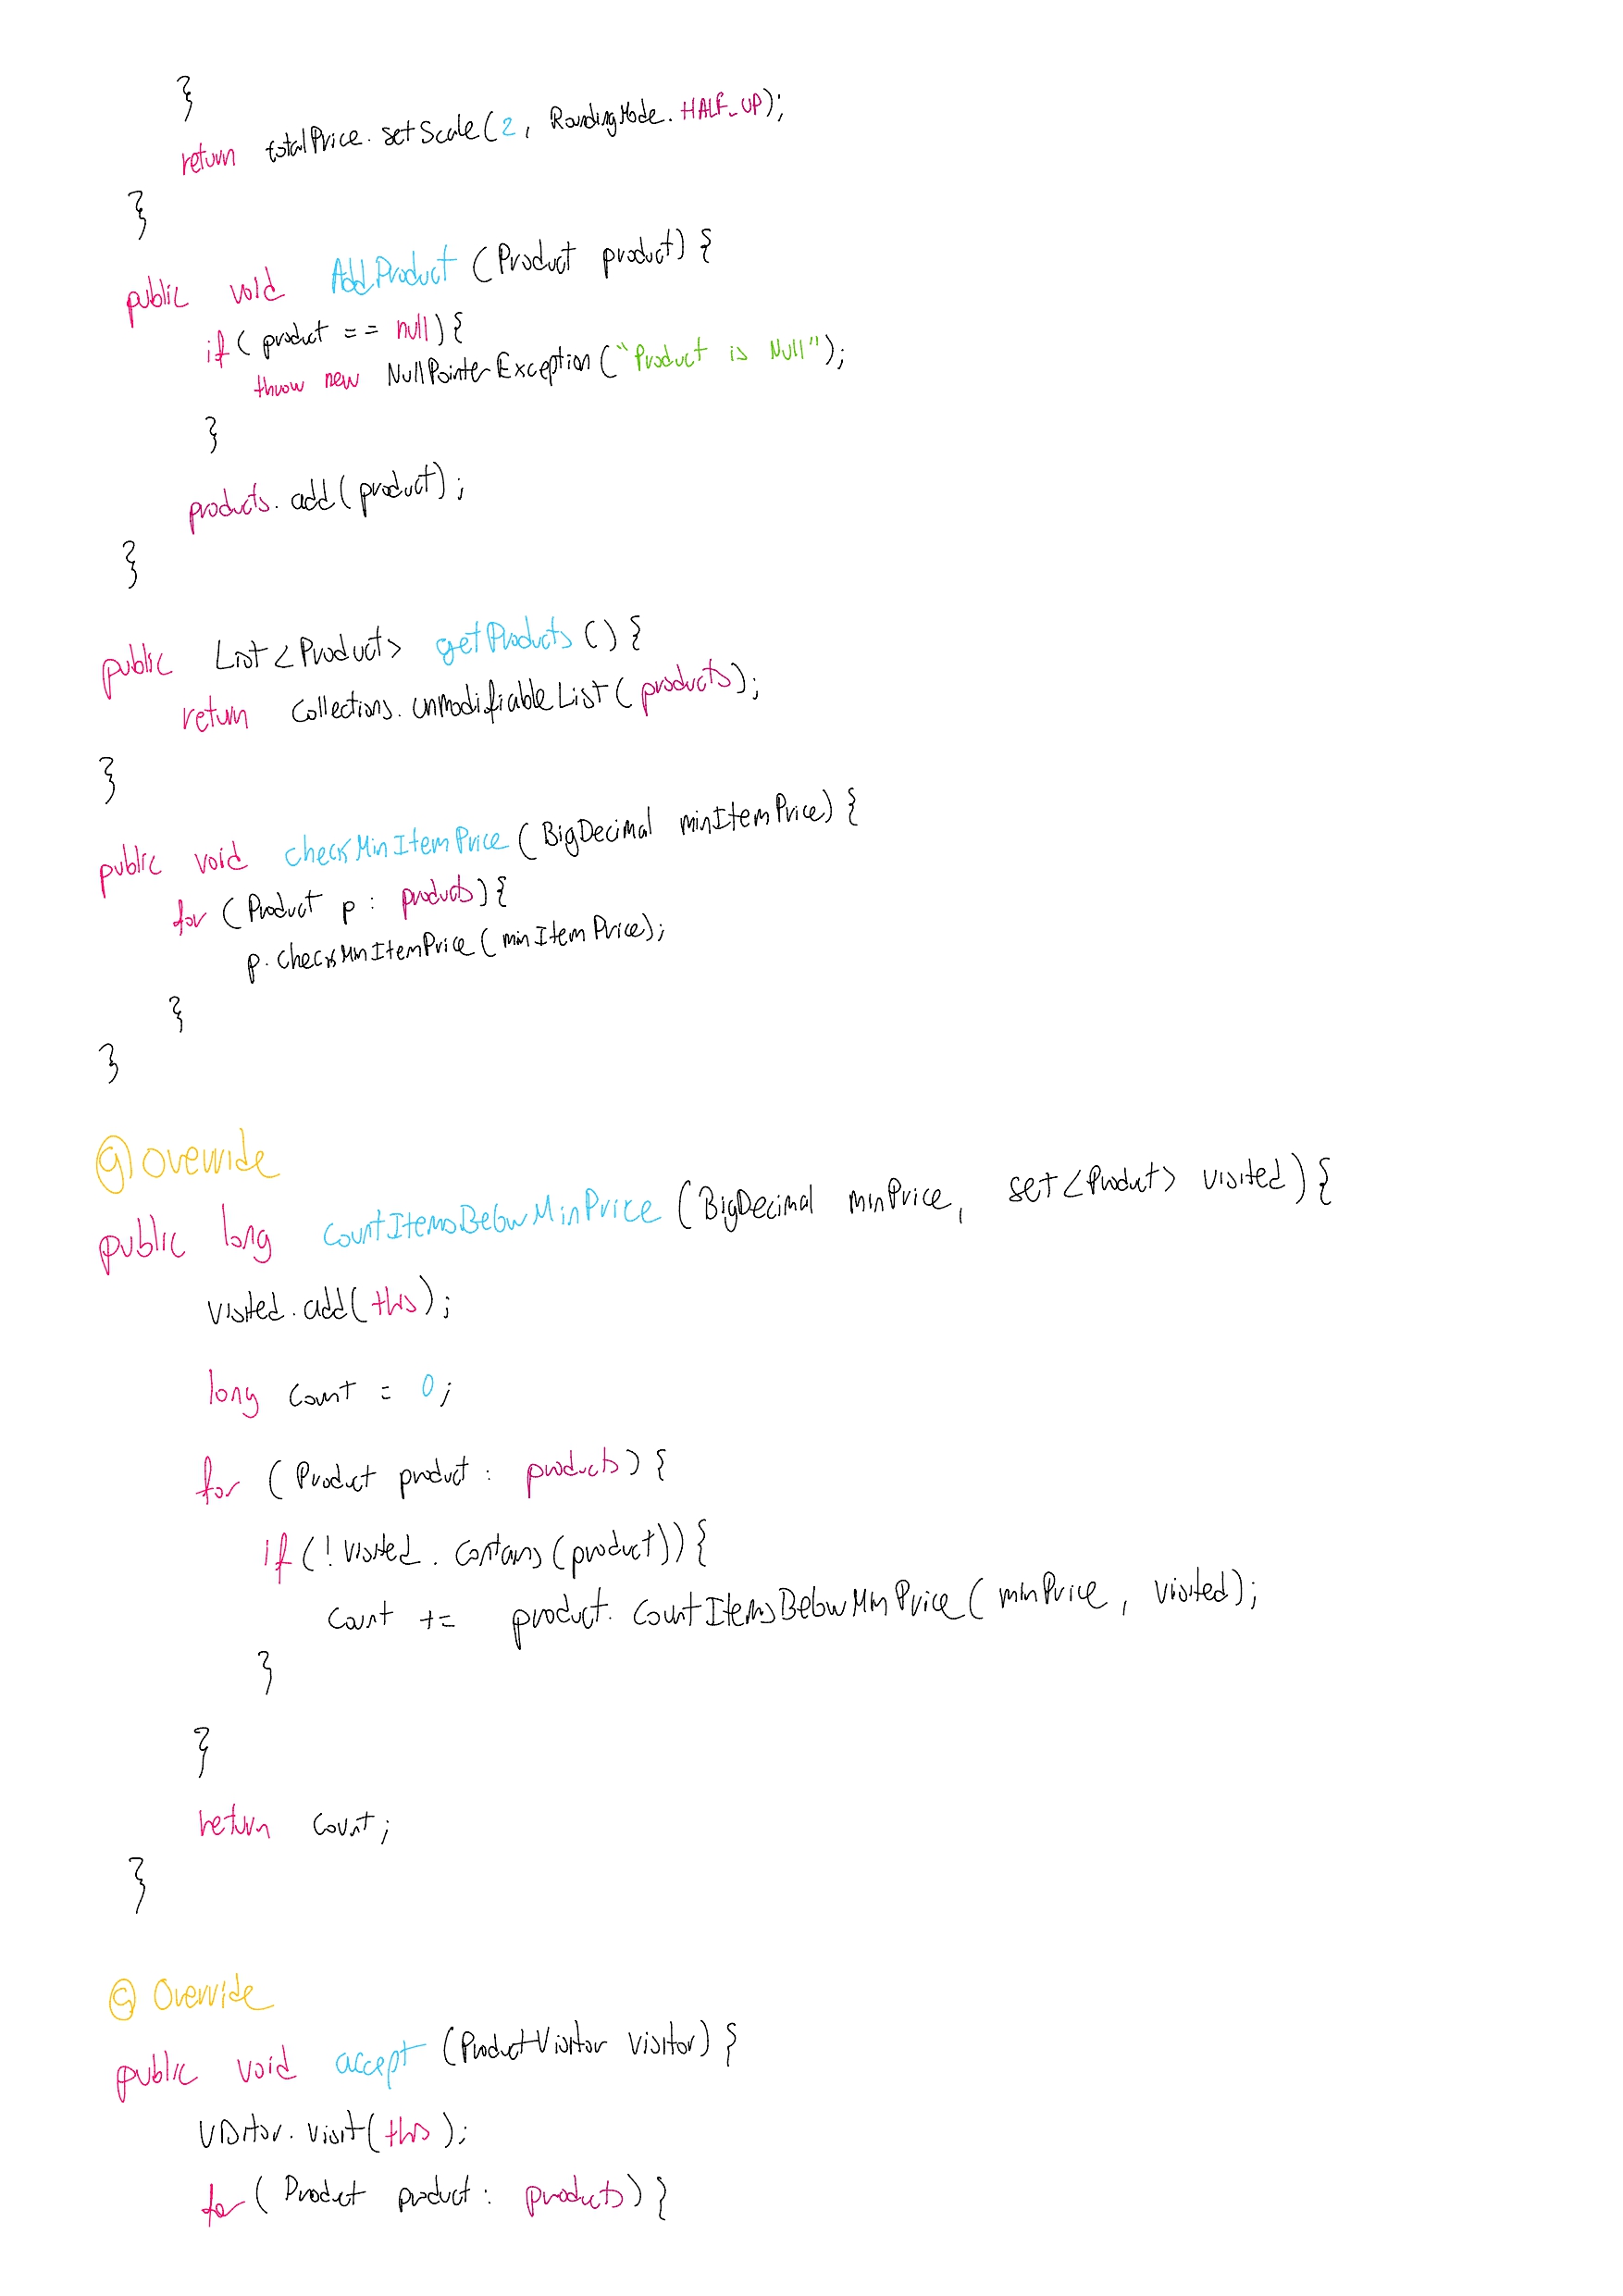 }
return totalPrice.setScale(2, RoundingMode.HALF_UP);
}
public void AddProduct (Product product) {
if( product == null){
throw new NullPointerException("Product is Null");
}
products.add(product);
}
public List<Product> getProducts () {
return Collections.unmodifiableList(products);
}
public void checkMinItemPrice (BigDecimal minItemPrice) {
for (Product p : products){
p.checkMinItemPrice(minItemPrice);
}
}
@Override
public long countItemsBelowMinPrice (BigDecimal minPrice, set<Product> visited) {
visited.add(this);
long count = 0;
for (Product product : products) {
if (!visited.contains(product)) {
count += product.countItemsBelowMinPrice(minPrice, visited);
}
}
return count;
}
@Override
public void accept (ProductVisitor visitor) {
visitor.visit(this);
for (Product product : products) {